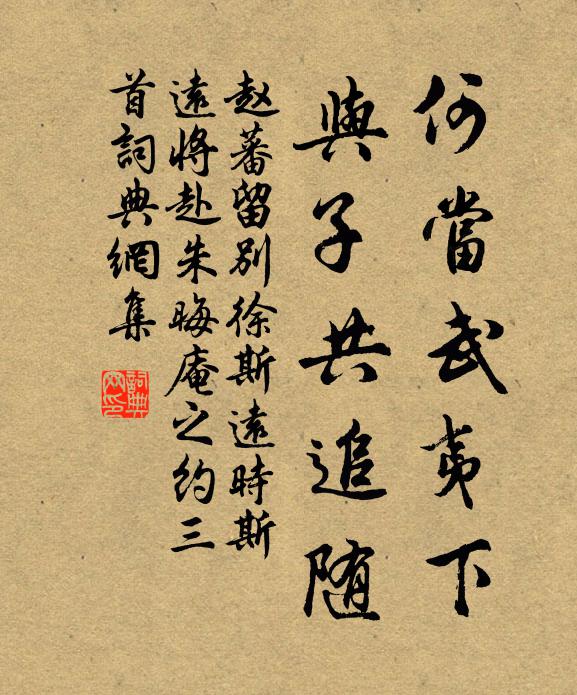 何當武夷下
與子共追随
赵蕃留别徐斯遠時斯
遠將赴朱晦庵之約三
首詞典網集
詞典
网印